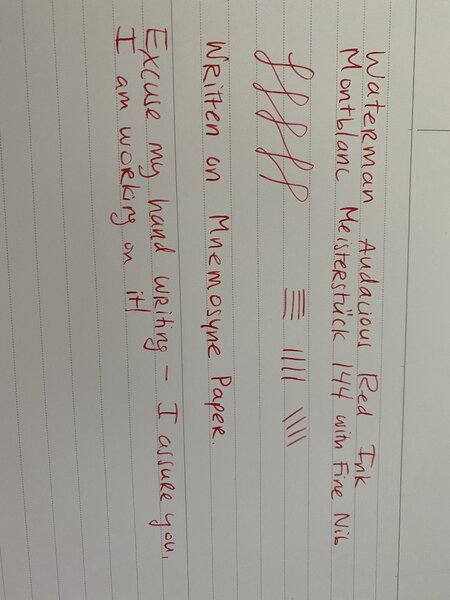 Waterman Audacious Red Ink
Montblanc Meisterstück 144 with Fine Nib
Written on Mnemosyne Paper.
Excuse my hand writing – I assure you,
I am working on it!